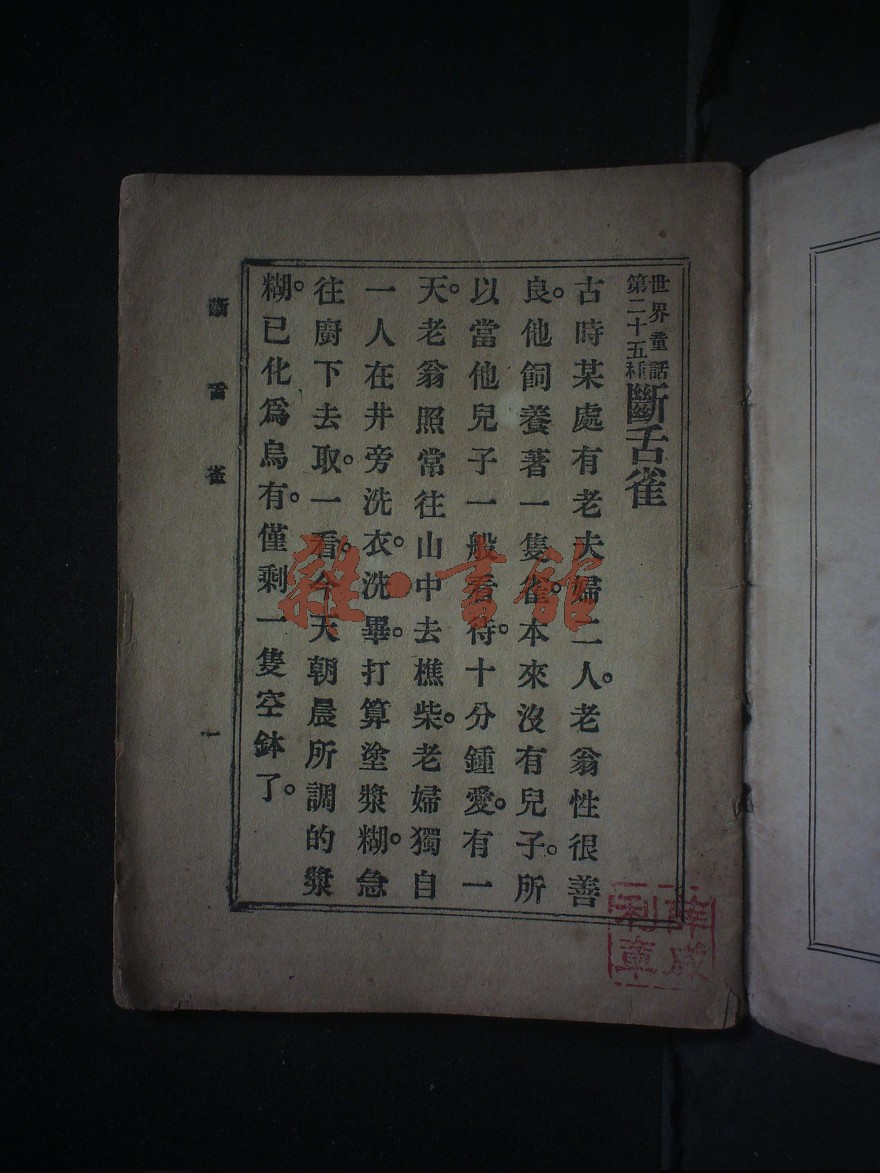 世界童話
第二十五種
斷舌雀
古時某處有老夫婦二人。老翁性很善
良。他飼養著一隻雀。本來沒有兒子。所
以當他兒子一般看待。十分鍾愛。有一
天。老翁照常往山中去樵柴。老婦獨自
一人在井旁洗衣。洗畢。打算塗漿糊。急
往廚下去取。一看。今天朝晨所調的漿
糊。已化爲烏有。僅剩一隻空鉢了。
斷舌雀
一
雜·書館
薛威
利章